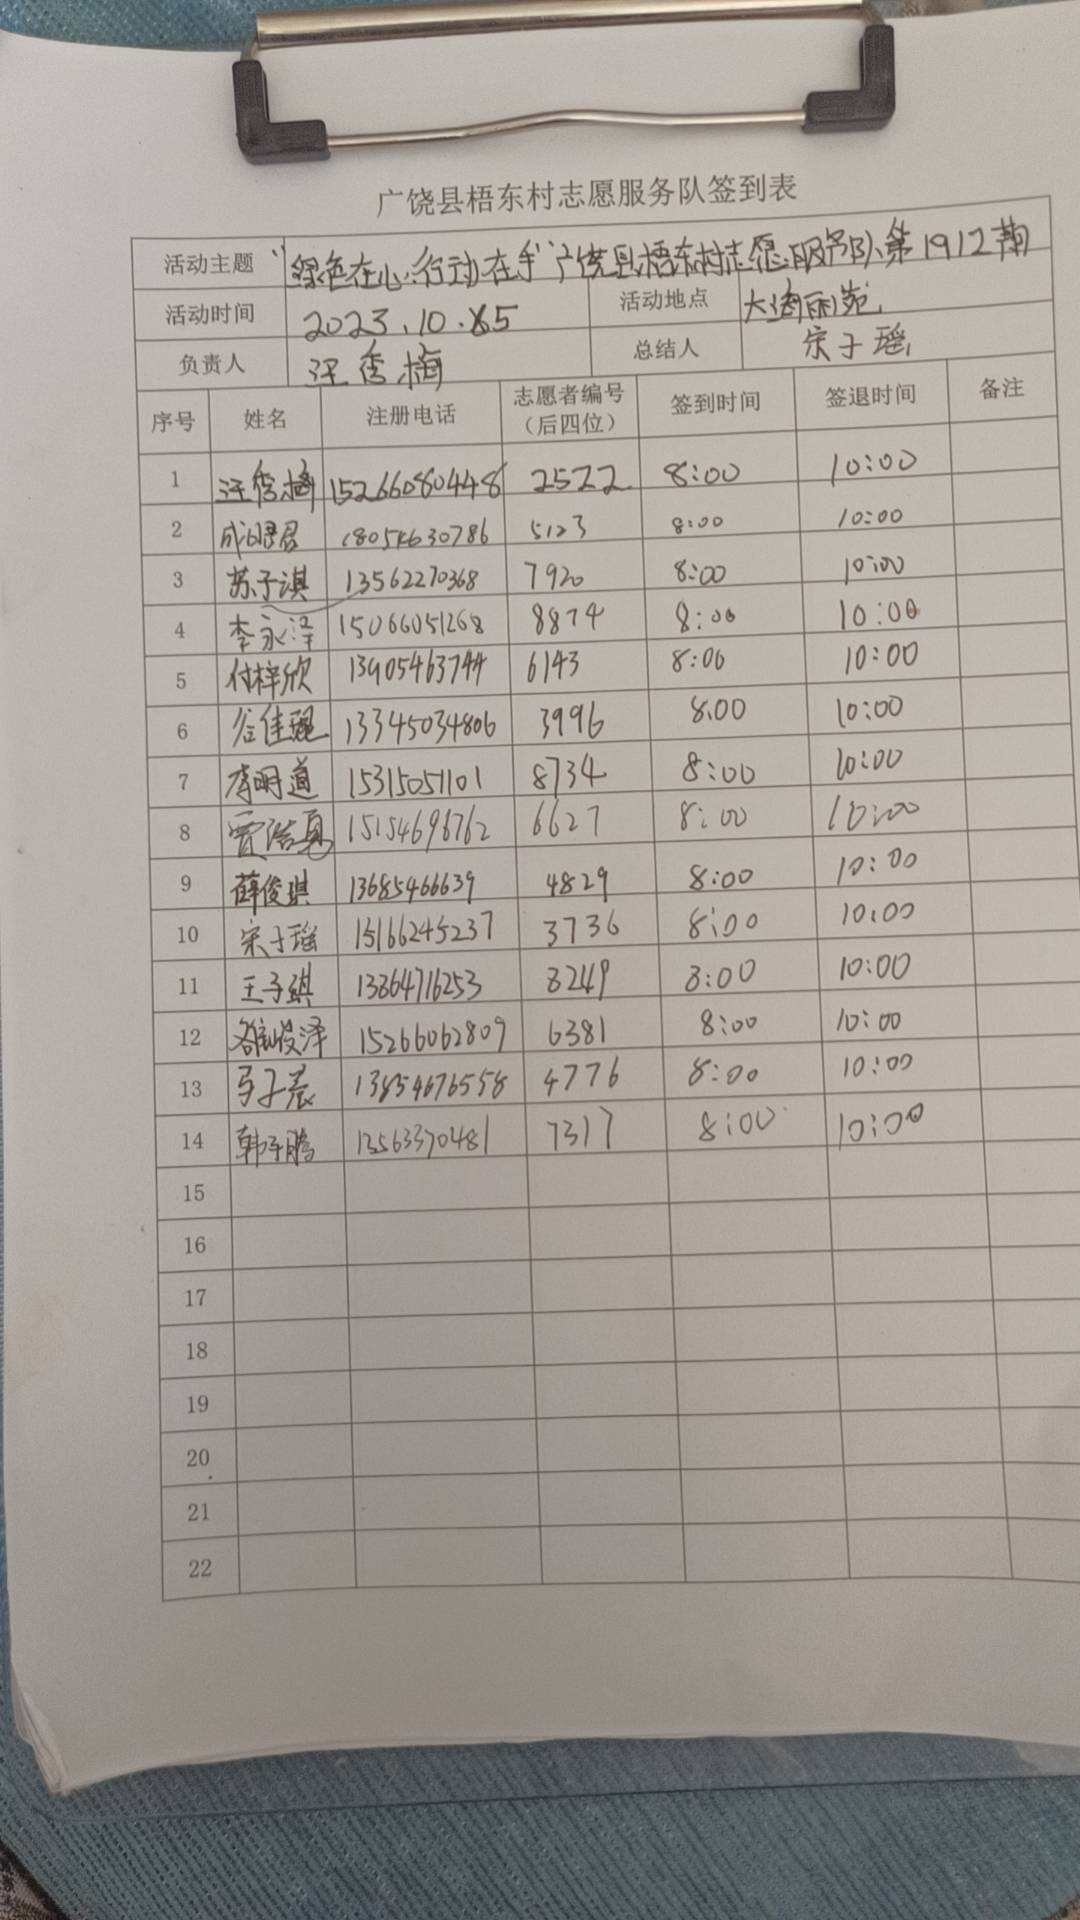 广饶县梧东村志愿服务队签到表
活动主题 "绿色在心,行动在手"广饶县梧东村志愿服务队第1912期
活动时间 2023.10. 5 活动地点 大海丽苑
负责人 汪秀梅 总结人 宋子瑶
序号 姓名 注册电话 志愿者编号（后四位） 签到时间 签退时间 备注
1 汪秀梅 15266080448 2522 8:00 10:00
2 成明君 5123 8:00 10:00
3 苏子淇 13562270368 7920 8:00 10:00
4 李永泽 15066051268 8874 8:00 10:00
5 付梓欣 13905463744 6143 8:00 10:00
6 谷佳 13345034806 3996 8:00 10:00
7 李明道 15315051101 8734 8:00 10:00
8 贾浩 15154696762 6627 8:00 10:00
9 薛俊琪 13685466639 4829 8:00 10:00
10 宋子瑶 15166245237 3736 8:00 10:00
11 王子琪 13864716253 8249 8:00 10:00
12 俊泽 15266062809 6381 8:00 10:00
13 子晨 13854676558 4776 8:00 10:00
14 韩子腾 13563370481 7317 8:00 10:00
15
16
17
18
19
20
21
22